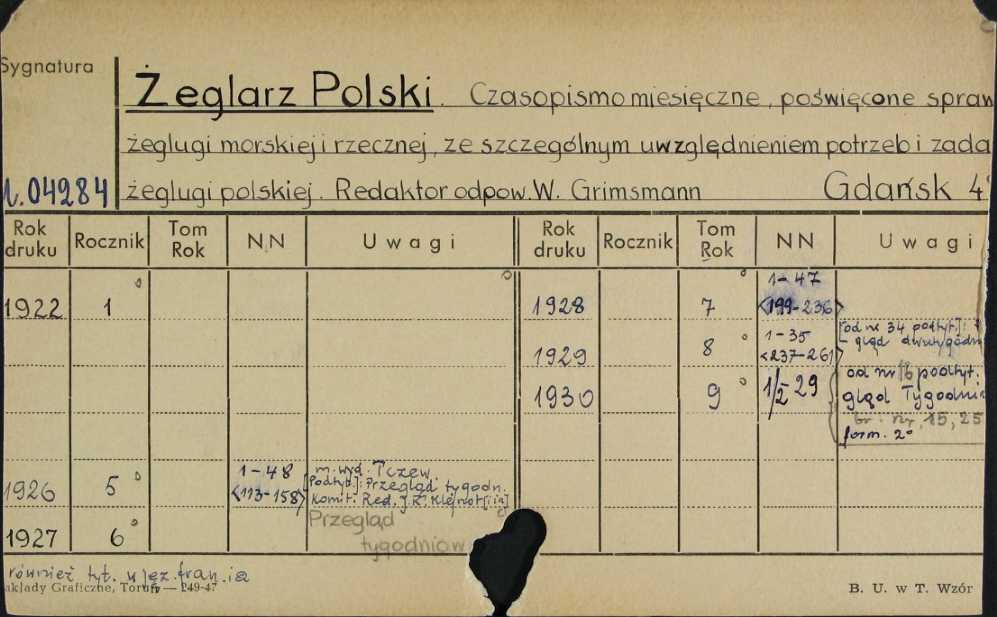 Sygnatura
Żeglarz Polski. Czasopismo miesięczne, poświęcone spraw
żeglugi morskiej i rzecznej, ze szczególnym uwzględnieniem potrzeb i zada
04284 żeglugi polskiej. Redaktor odpow. W. Grimsmann Gdańsk 4°
Rok druku Rocznik Tom Rok NN Uwagi Rok druku Rocznik Tom Rok NN Uwagi
1922 1° 1928 7° 1-47 <199-236>
1929 8° 1-35 <237-261> [od nr 34 podtyt.]:
gląd dwutygodn
1930 9° 1/2-29 od nr 16 podtyt.
gląd Tygodni
nr, 15, 25
form. 2°
1926 5° 1-48 <113-158> m. wyd. Tczew.
[Podtyt.]: Przegląd tygodn.
Komit. Red. J.K. Klejnot [i in]
1927 6° Przegląd
tygodniow
również tyt. w jęz. fran. ia
akłady Graficzne, Toruń — 249-47 B. U. w T. Wzór